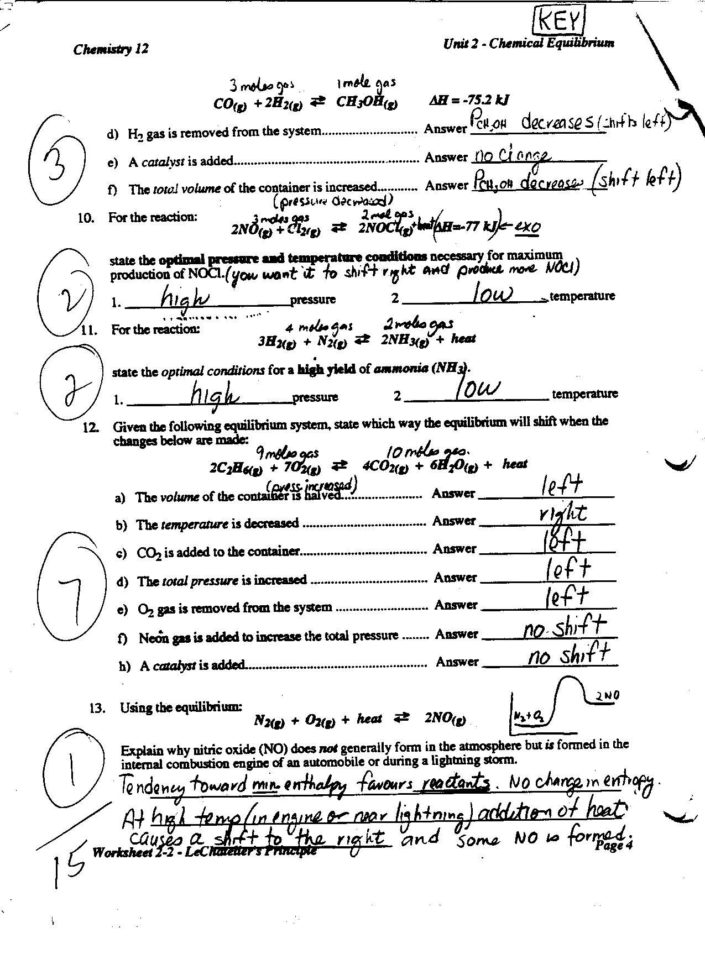 KEY
Chemistry 12 Unit 2 - Chemical Equilibrium
3 moles gas 1 mole gas
CO(g) + 2H2(g) ⇄ CH3OH(g) ΔH = -75.2 kJ
d) H2 gas is removed from the system................................ Answer PCH3OH decreases (shifts left)
3
e) A catalyst is added................................................................ Answer no change
f) The total volume of the container is increased............ Answer PCH3OH decreases (shift left)
(pressure decreased)
10. For the reaction: 3 moles gas 2 mol gas
2NO(g) + Cl2(g) ⇄ 2NOCl(g) + heat (ΔH=-77 kJ) ← exo
state the optimal pressure and temperature conditions necessary for maximum
production of NOCl. (you want it to shift right and produce more NOCl)
2
1. high pressure 2 low temperature
11. For the reaction: 4 moles gas 2 moles gas
3H2(g) + N2(g) ⇄ 2NH3(g) + heat
state the optimal conditions for a high yield of ammonia (NH3).
2
1. high pressure 2 low temperature
12. Given the following equilibrium system, state which way the equilibrium will shift when the
changes below are made:
9 moles gas 10 moles gas.
2C2H6(g) + 7O2(g) ⇄ 4CO2(g) + 6H2O(g) + heat
(press increased)
a) The volume of the container is halved..................... Answer left
b) The temperature is decreased ................................ Answer right
c) CO2 is added to the container................................ Answer left
7
d) The total pressure is increased .............................. Answer left
e) O2 gas is removed from the system ........................ Answer left
f) Neon gas is added to increase the total pressure ........ Answer no shift
h) A catalyst is added................................................ Answer no shift
13. Using the equilibrium:
N2(g) + O2(g) + heat ⇄ 2NO(g)
N2+O2 2NO
1
Explain why nitric oxide (NO) does not generally form in the atmosphere but is formed in the
internal combustion engine of an automobile or during a lightning storm.
Tendency toward min enthalpy favours reactants. No change in entropy.
At high temp (in engine or near lightning) addition of heat
causes a shift to the right and some NO is formed.
15
Worksheet 2-2 - LeChatelier's Principle Page 4